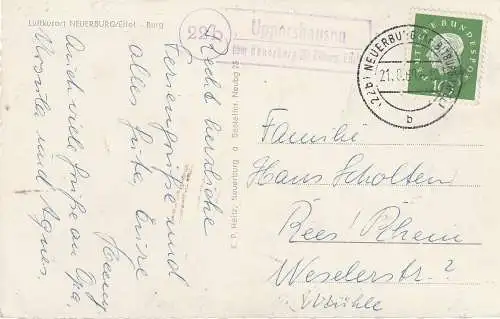 Luftkurort NEUERBURG/Eifel - Burg
22b
Uppershausen
über Neuerburg
(22b) NEUERBURG (BZ TRIER)
21.8.61
b
DEUTSCHE BUNDESPOST
10
P. Heltz, Neuerburg
Recht herzliche
Feriengrüße und
alles Gute, Eure
Henny
Auch viele Grüße an Opa,
Ursula und Agnes.
Familie
Hans Scholten
Rees / Rhein
Weselerstr.
Mühle